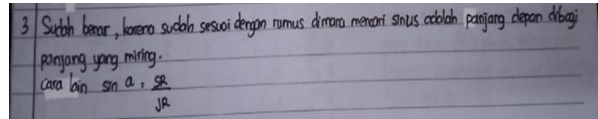 3 Sudah benar, karena sudah sesuai dengan rumus dimana mencari sinus adalah panjang depan dibagi
panjang yang miring.
Cara lain sin a = SR
JR